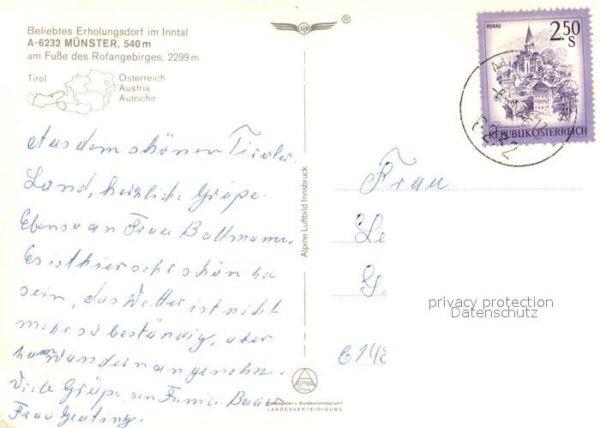 Beliebtes Erholungsdorf im Inntal
A-6232 MÜNSTER, 540 m
am Fuße des Rofangebirges, 2299 m
Tirol
Österreich
Austria
Autriche
Aus dem schönen Tiroler
Land, herzliche Grüße.
Ebenso an Frau Ballmann.
Es ist hier sehr schön
sein, das Wetter ist nicht
mehr so beständig, aber
wandern angenehm.
Viele Grüße, Familie
Frau
Alpine Luftbild Innsbruck
ALPINE
Bundesministerium f.
LANDESVERTEIDIGUNG
MURAU
2.50
S
REPUBLIK ÖSTERREICH
6232
Frau
Le
privacy protection
Datenschutz